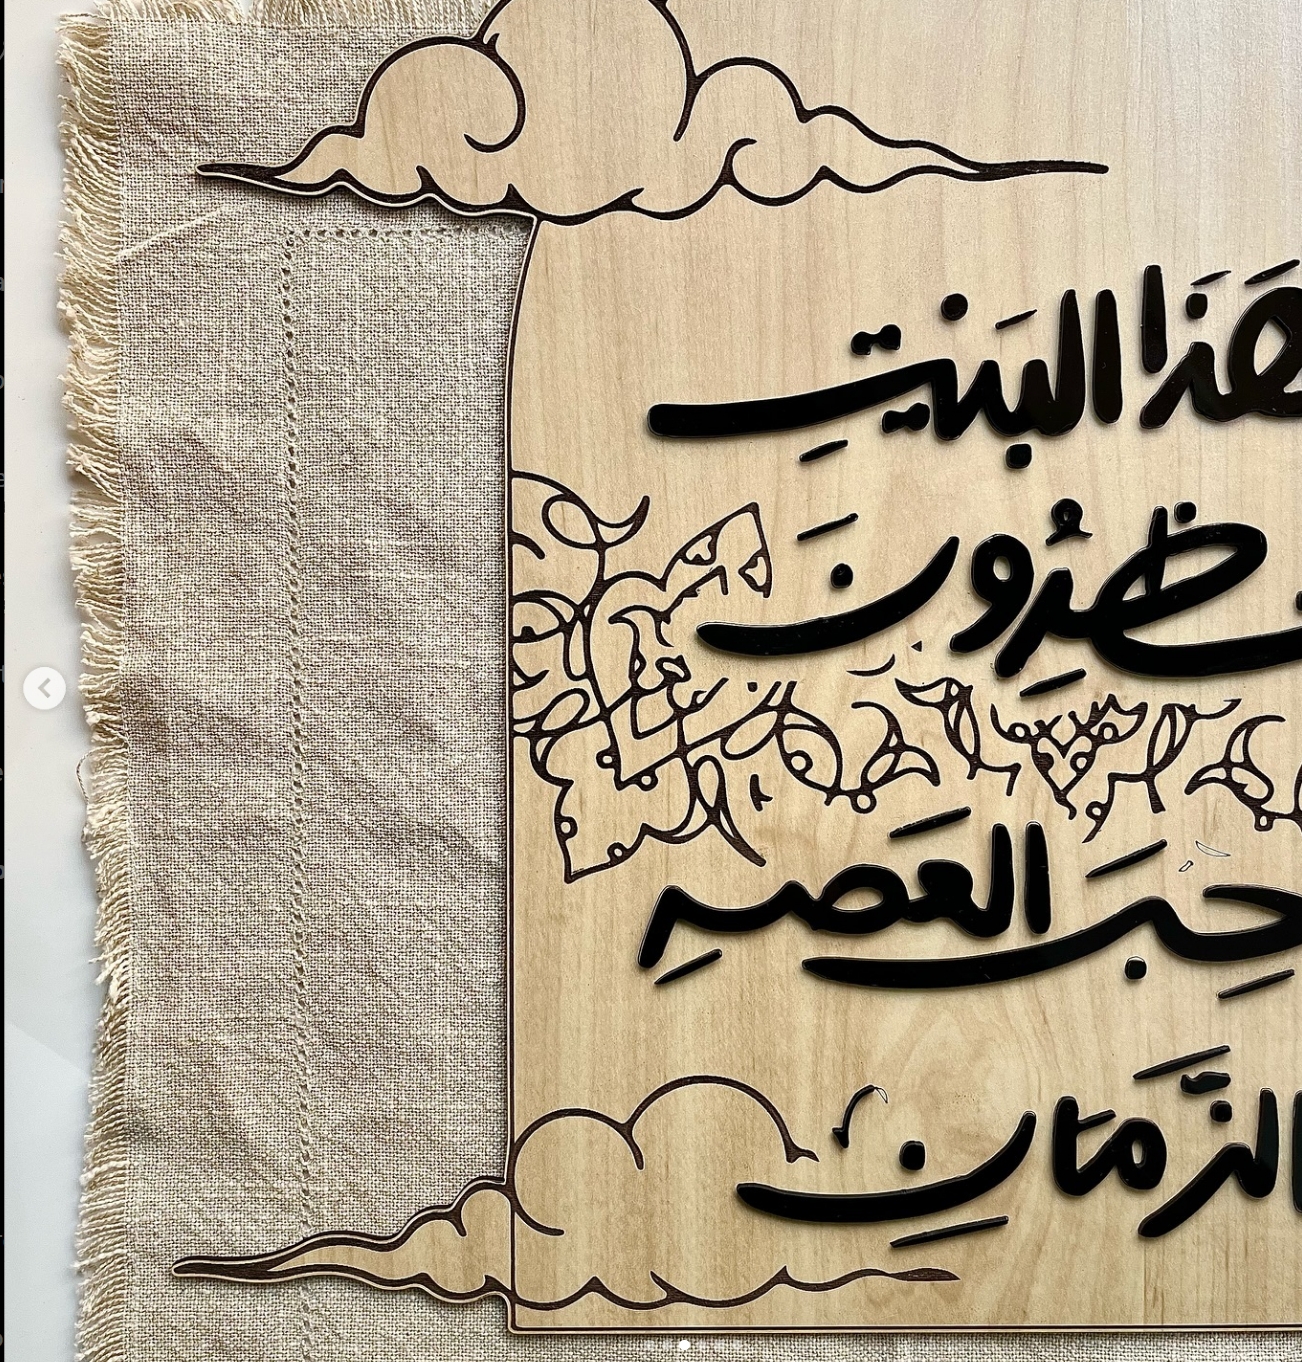 هَذَا البَيْتِ
ظِرُونَ
حِبَ العَصرِ
الزَّمَانِ